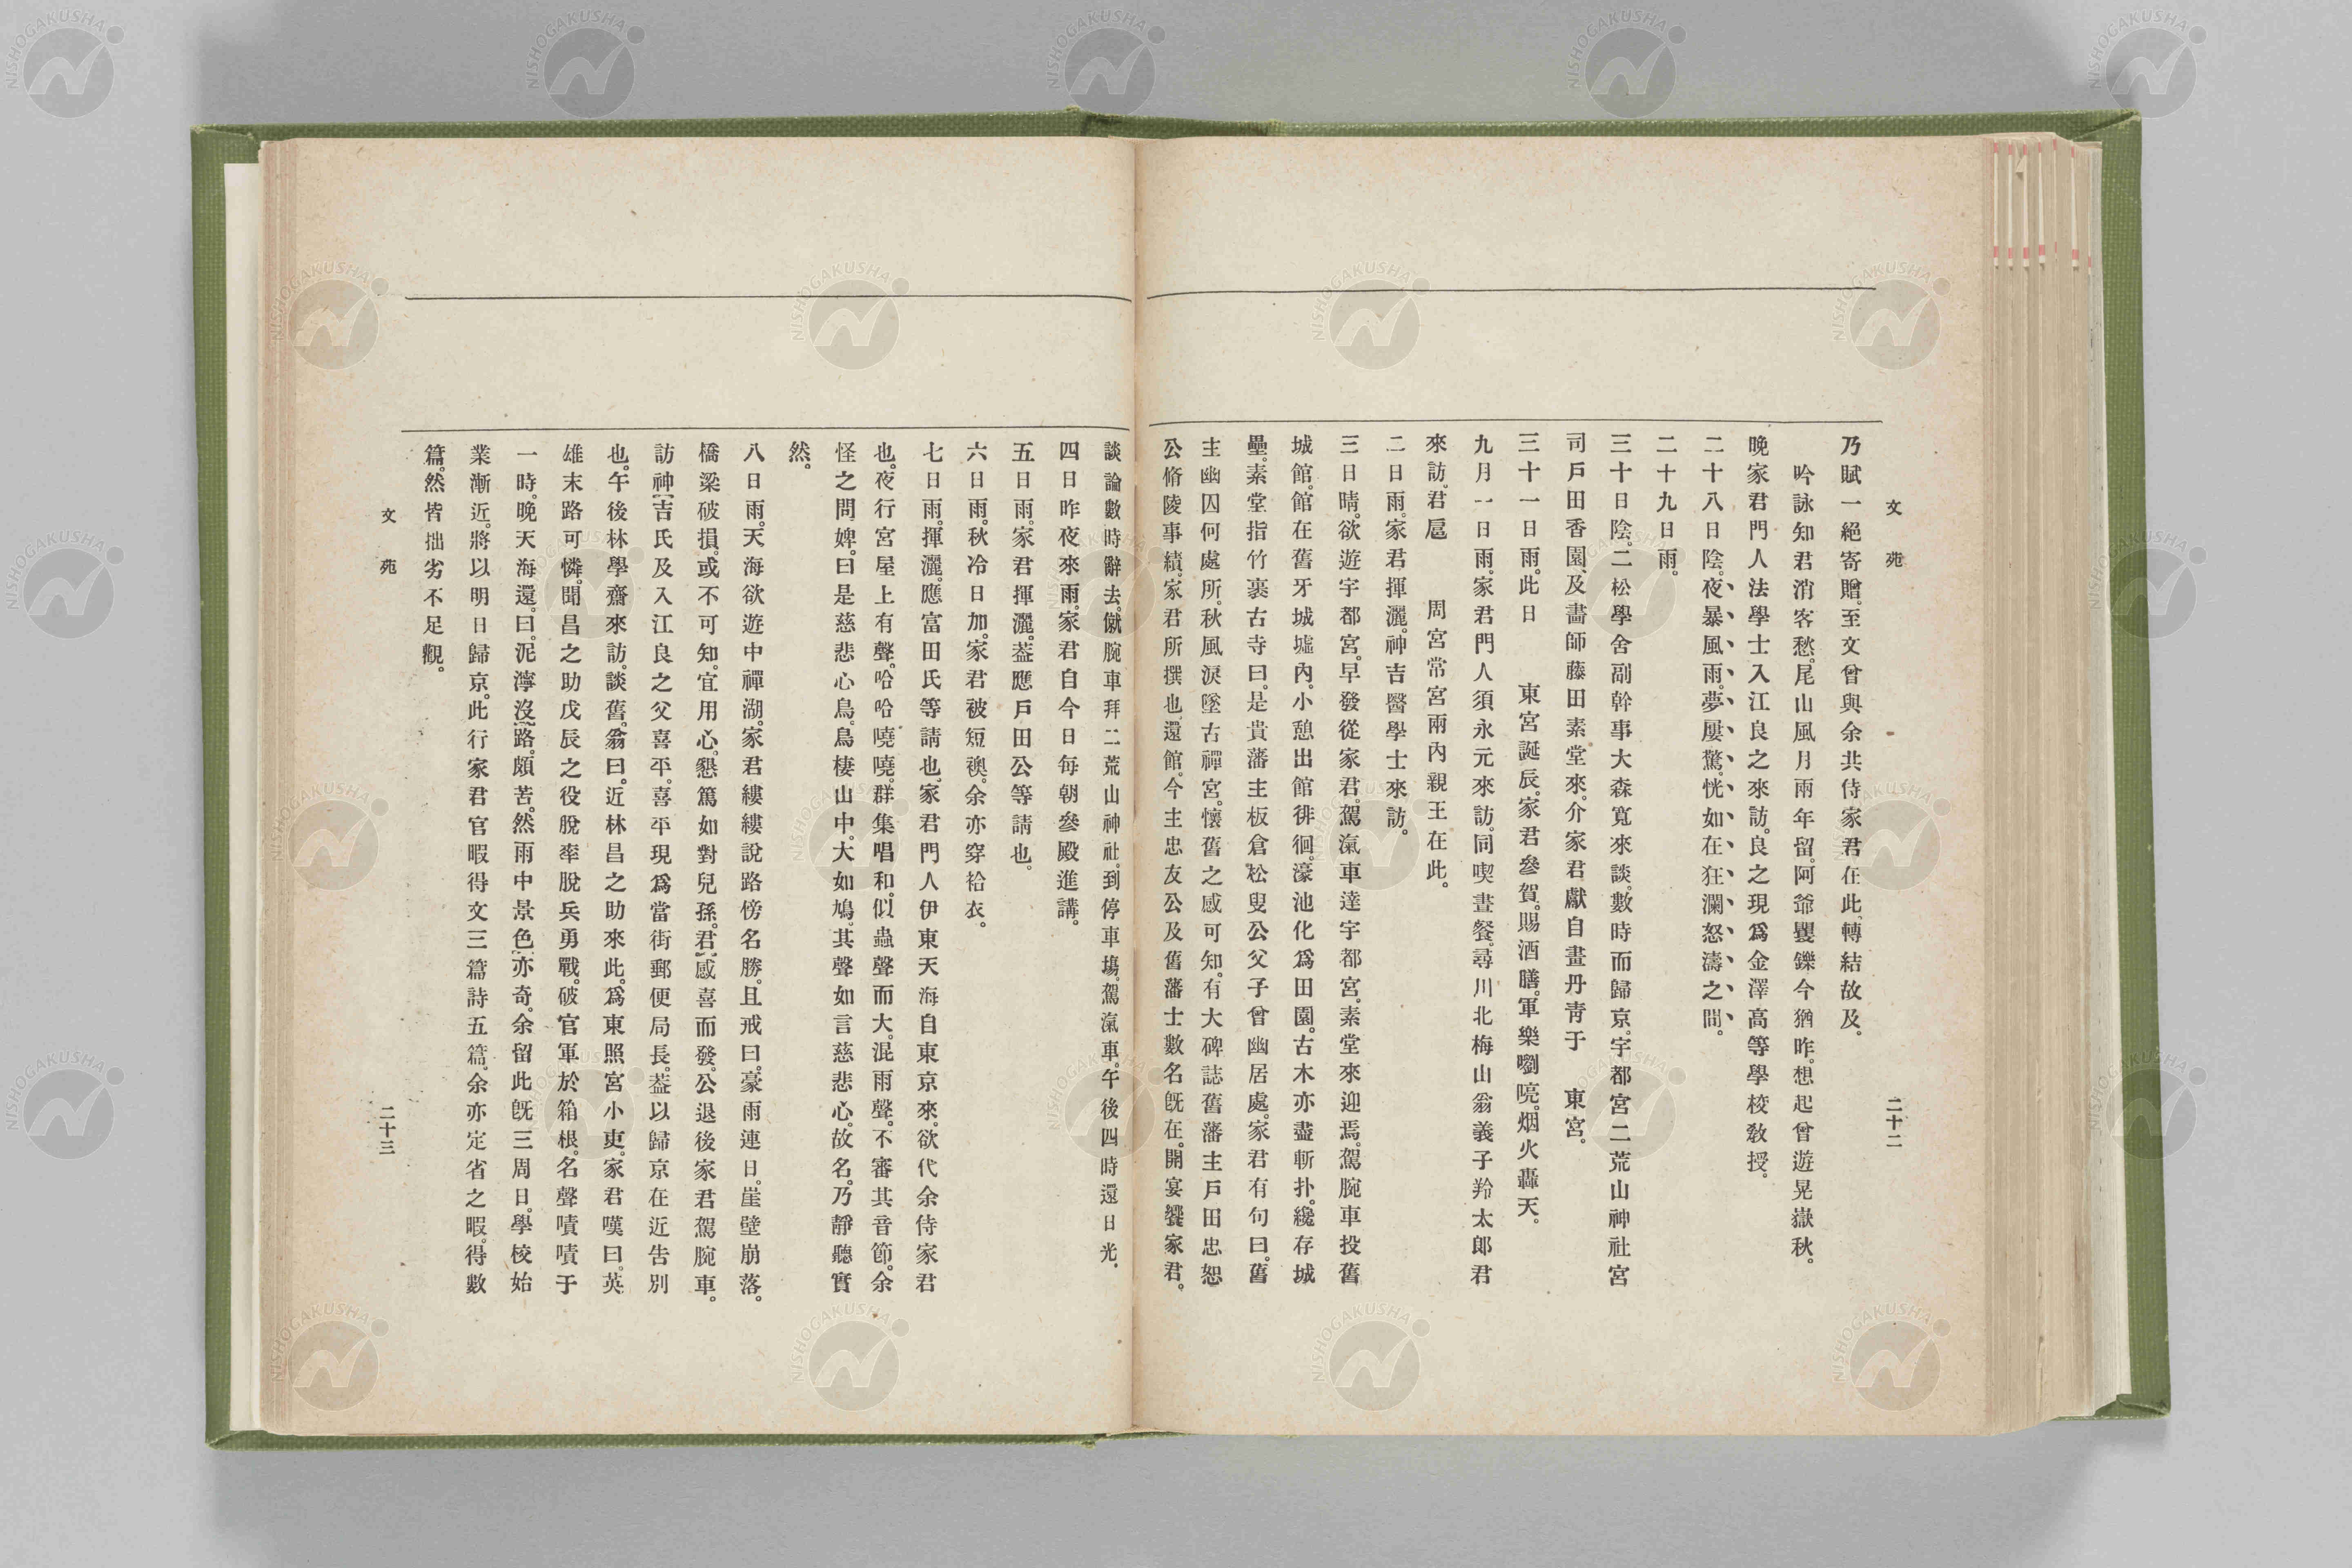 文苑
二十二
乃賦一絕寄贈。至文曾與余共侍家君在此、轉結故及。
吟詠知君消客愁。尾山風月兩年留。阿爺矍鑠今猶昨。想起曾遊晃嶽秋。
晩家君門人法學士入江良之來訪。良之現爲金澤高等學校教授。
二十八日陰。夜暴風雨。夢屢驚。恍如在狂瀾怒濤之間。
二十九日雨。
三十日陰。二松學舍副幹事大森寬來談。數時而歸京。宇都宮二荒山神社宮
司戶田香園、及畵師藤田素堂來。介家君獻自畫丹靑于　東宮。
三十一日雨。此日　東宮誕辰。家君參賀。賜酒膳。軍樂嚠喨。烟火轟天。
九月一日雨。家君門人須永元來訪。同喫晝餐。尋川北梅山翁義子羚太郎君
來訪。君扈　周宮常宮兩內親王在此。
二日雨。家君揮灑。神吉醫學士來訪。
三日晴。欲遊宇都宮。早發從家君。駕滊車達宇都宮。素堂來迎焉。駕腕車投舊
城館。館在舊牙城墟內。小憩出館徘徊。濠池化爲田園。古木亦盡斬扑。纔存城
壘。素堂指竹裹古寺曰。是貴藩主板倉松叟公父子曾幽居處。家君有句曰。舊
主幽囚何處所。秋風淚墜古禪宮。懷舊之感可知。有大碑誌舊藩主戶田忠恕
公脩陵事績。家君所撰也。還館。今主忠友公及舊藩士數名旣在。開宴饗家君。
談論數時辭去。僦腕車拜二荒山神社。到停車塲。駕滊車。午後四時還日光。
四日昨夜來雨。家君自今日每朝參殿進講。
五日雨。家君揮灑。葢應戶田公等請也。
六日雨。秋冷日加。家君被短襖。余亦穿袷衣。
七日雨。揮灑。應富田氏等請也。家君門人伊東天海自東京來。欲代余侍家君
也。夜行宮屋上有聲。哈哈嘵嘵。群集唱和。似蟲聲而大。混雨聲。不審其音節。余
怪之問婢。曰是慈悲心鳥。鳥棲山中。大如鳩。其聲如言慈悲心。故名。乃靜聽實
然。
八日雨。天海欲遊中禪湖。家君縷縷說路傍名勝。且戒曰。豪雨連日。崖壁崩落。
橋梁破損。或不可知。宜用心。懇篤如對兒孫。君感喜而發。公退後家君駕腕車。
訪神吉氏及入江良之父喜平。喜平現爲當街郵便局長。葢以歸京在近吿別
也。午後林學齋來訪。談舊。翁曰。近林昌之助來此。爲東照宮小吏。家君嘆曰。英
雄末路可憐。聞昌之助戊辰之役脫率脫兵勇戰。破官軍於箱根。名聲嘖嘖于
一時。晩天海還。曰。泥濘沒路。頗苦。然雨中景色亦奇。余留此旣三周日。學校始
業漸近。將以明日歸京。此行家君官暇得文三篇詩五篇。余亦定省之暇。得數
篇。然皆拙劣不足觀。
文苑
二十三